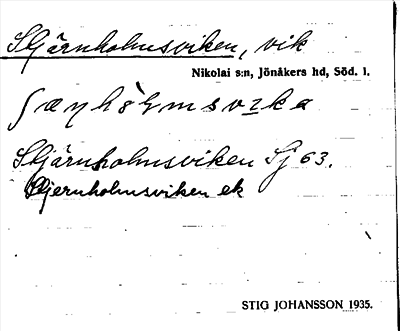 Stjärnholmsviken, vik
Nikolai s:n, Jönåkers hd, Söd. l.
Stjärnholmsviken Sj 63.
Stjernholmsviken ek
STIG JOHANSSON 1935.